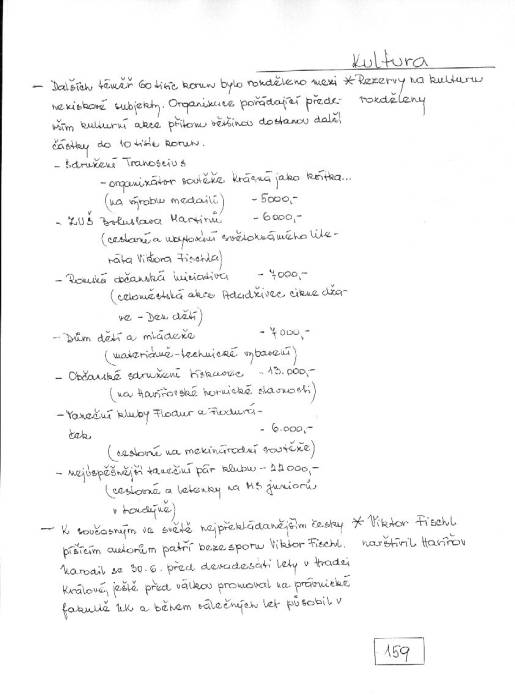 Kultura
— Dalších téměř 60 tisíc korun bylo rozděleno mezi
neziskové subjekty. Organizace pořádající přede-
vším kulturní akce přitom většinou dostanou další
částky do 10 tisíc korun.
* Rezervy na kulturu
rozděleny
- Sdružení Tranoscius
- organizátor soutěže Krásná jako kvítka...
(na výrobu medailí) - 5000,-
- ZUŠ Bohuslava Martinů - 6000,-
(cestovné a ubytování světoznámého lite-
ráta Viktora Fischla)
- Romská občanská iniciativa - 7000,-
(celoměstská akce Adadživec cikne dža-
ve - Den dětí)
- Dům dětí a mládeže - 7000,-
(materiálně-technické vybavení)
- Občanské sdružení - 13.000,-
(na Havířovské hornické slavnosti)
- Taneční kluby Flodur a
- 6.000,-
(cestovné na mezinárodní soutěže)
- nejúspěšnější taneční pár klubu - 22000,-
(cestovné a letenky na MS juniorů
v Londýně)
— K současným ve světě nejpřekládanějším česky
píšícím autorům patří bezesporu Viktor Fischl.
Narodil se 30.6. před devadesáti lety v Hradci
Králové, ještě před válkou promoval na právnické
fakultě UK a během válečných let působil v
* Viktor Fischl
navštívil Havířov
159